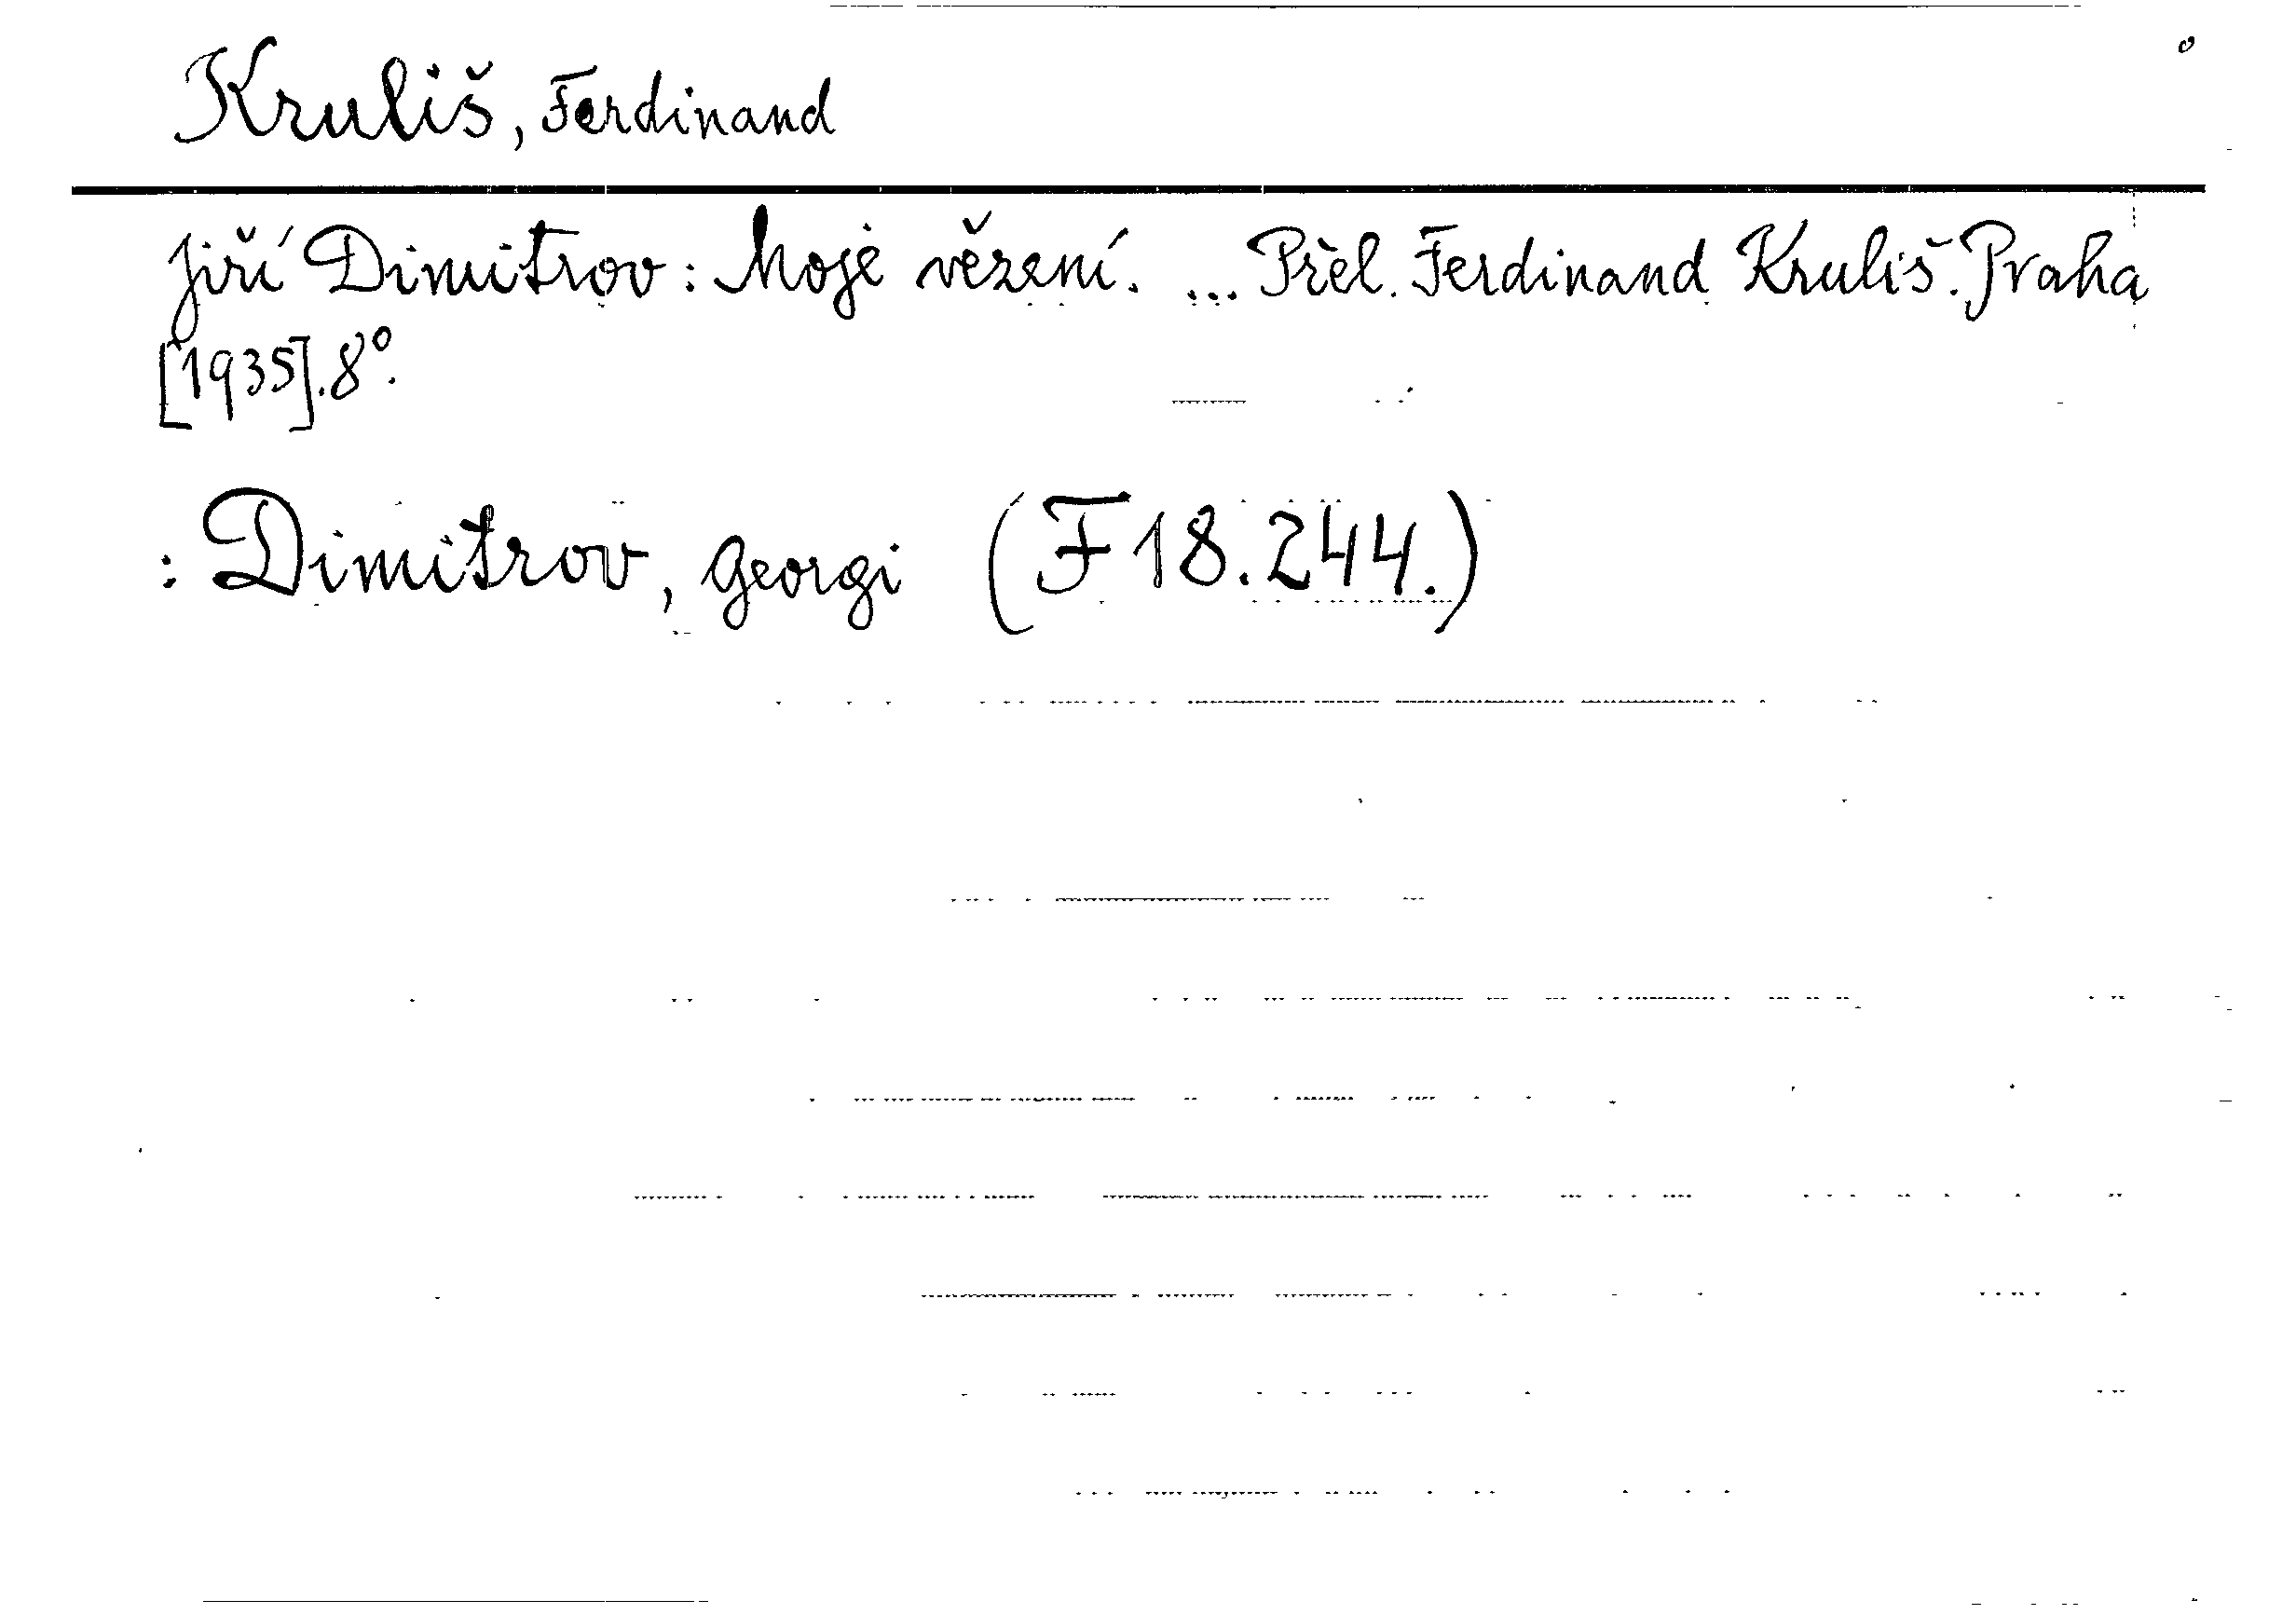 Kruliš, Ferdinand
Jiří Dimitrov: Moje vězení. ... Přel. Ferdinand Kruliš. Praha
[1935]. 8°.
: Dimitrov, Georgi (F 18.244.)